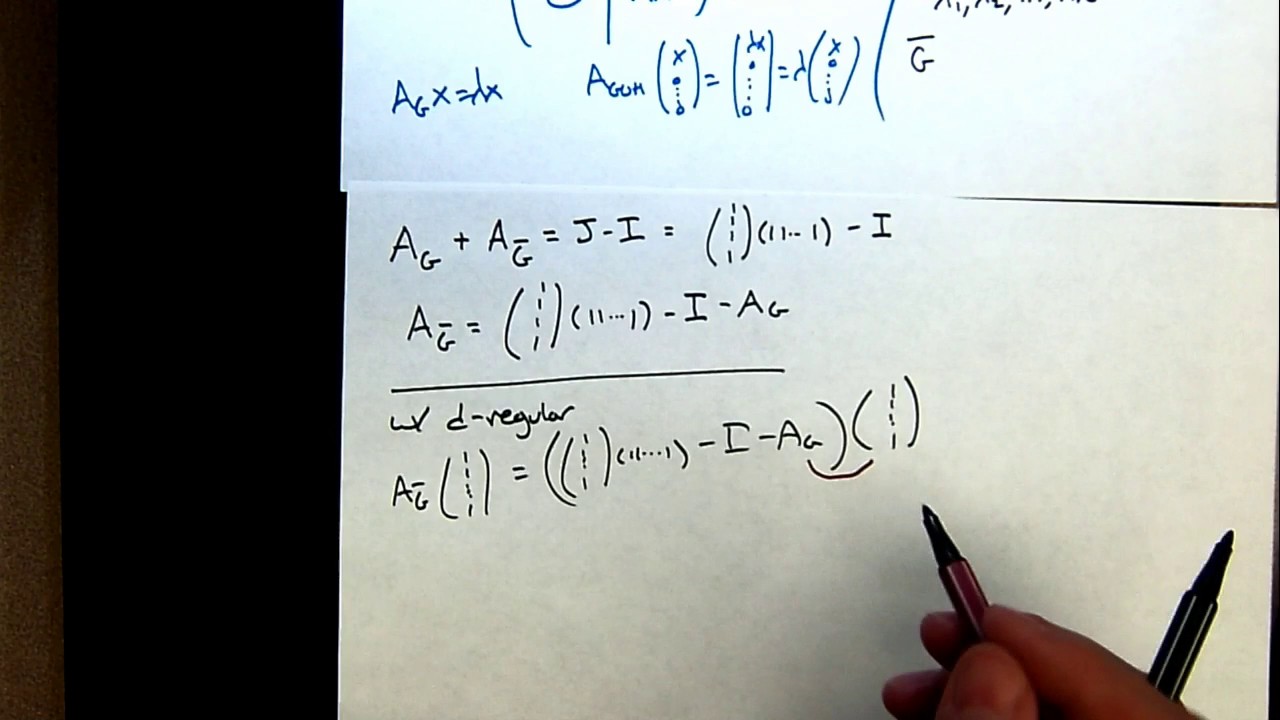 λ₁, λ₂, ..., 
G̅
A_G x = λx
A_{G∪H} (x 0 ⋮ 0) = (λx 0 ⋮ 0) = λ (x 0 ⋮ 0)
A_G + A_G̅ = J - I = (1 ⋮ 1)(1 1 ... 1) - I
A_G̅ = (1 ⋮ 1)(1 1 ... 1) - I - A_G
w/ d-regular
A_G̅ (1 ⋮ 1) = ((1 ⋮ 1)(1 1 ... 1) - I - A_G)(1 ⋮ 1)